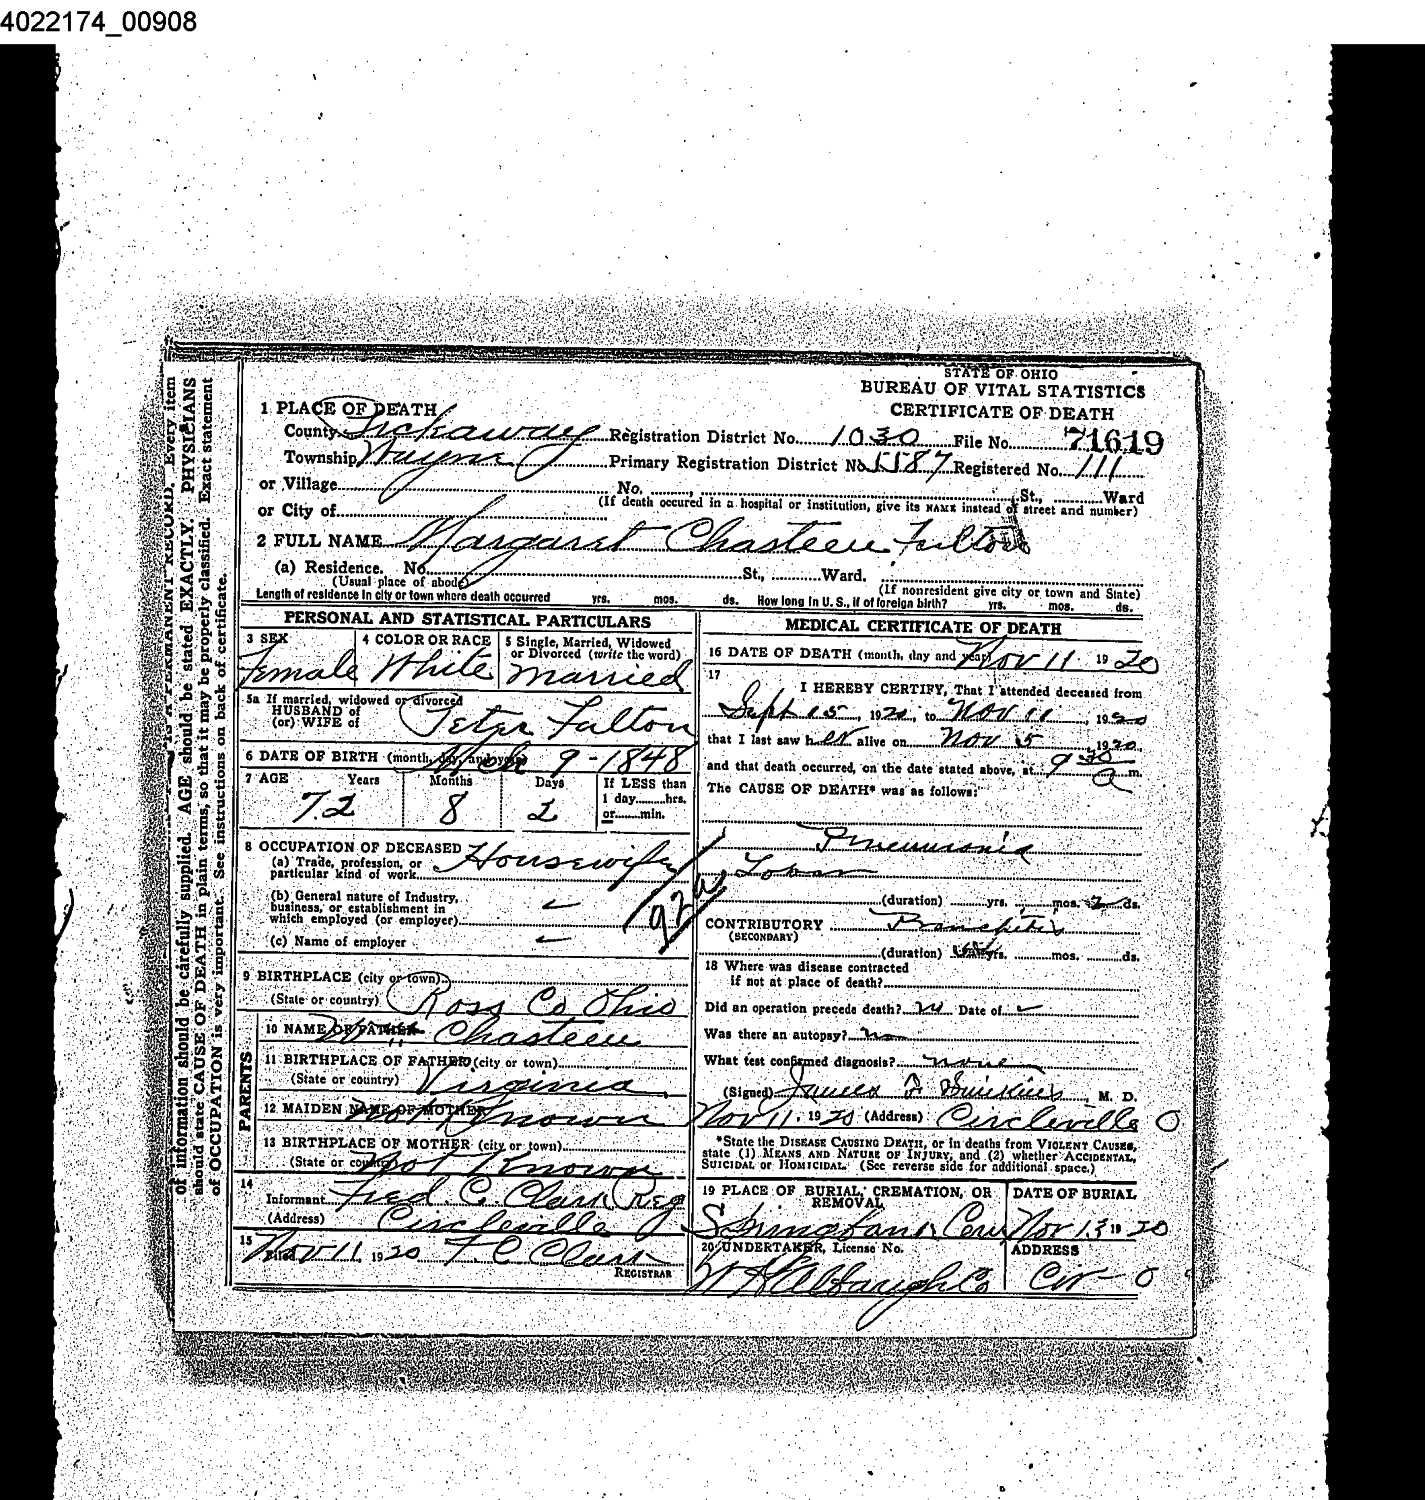 4022174_00908
STATE OF OHIO
BUREAU OF VITAL STATISTICS
CERTIFICATE OF DEATH
1 PLACE OF DEATH
County Pickaway Registration District No. 1030 File No. 71619
Township Wayne Primary Registration District No. 5587 Registered No. 111
or Village No. St., Ward
(If death occured in a hospital or institution, give its NAME instead of street and number)
or City of
2 FULL NAME Margaret Chasteen Fulton
(a) Residence. No. St., Ward.
(Usual place of abode) (If nonresident give city or town and State)
Length of residence in city or town where death occurred yrs. mos. ds. How long in U. S., if of foreign birth? yrs. mos. ds.
PERSONAL AND STATISTICAL PARTICULARS
3 SEX 4 COLOR OR RACE 5 Single, Married, Widowed
or Divorced (write the word)
Female White Married
5a If married, widowed or divorced
HUSBAND of
(or) WIFE of Peter Fulton
6 DATE OF BIRTH (month, day, and year) Mch 9-1848
7 AGE Years Months Days If LESS than
1 day hrs.
or min.
72 8 2
8 OCCUPATION OF DECEASED
(a) Trade, profession, or
particular kind of work Housewife
(b) General nature of Industry,
business, or establishment in
which employed (or employer)
(c) Name of employer
92a
9 BIRTHPLACE (city or town)
(State or country) Ross Co Ohio
PARENTS
10 NAME OF FATHER Chasteen
11 BIRTHPLACE OF FATHER (city or town)
(State or country) Virginia
12 MAIDEN NAME OF MOTHER Not Known
13 BIRTHPLACE OF MOTHER (city or town)
(State or country) Not Known
14
Informant Fred. C. Clark Reg
(Address) Circleville
15
Filed Nov 11, 1920 F C Clark
REGISTRAR
MEDICAL CERTIFICATE OF DEATH
16 DATE OF DEATH (month, day and year) Nov 11 1920
17
I HEREBY CERTIFY, That I attended deceased from
Sept 15, 1920, to Nov 11, 1920
that I last saw her alive on Nov 5, 1920,
and that death occurred, on the date stated above, at 9 30 a m.
The CAUSE OF DEATH* was as follows:
Pneumonia
Lobar
(duration) yrs. mos. 2 ds.
CONTRIBUTORY Bronchitis
(SECONDARY)
(duration) yrs. mos. ds.
18 Where was disease contracted
if not at place of death?
Did an operation precede death? no Date of
Was there an autopsy? no
What test confirmed diagnosis? none
(Signed) James M. D.
Nov 11, 1920 (Address) Circleville O
*State the DISEASE CAUSING DEATH, or in deaths from VIOLENT CAUSES,
state (1) MEANS AND NATURE OF INJURY, and (2) whether ACCIDENTAL,
SUICIDAL or HOMICIDAL. (See reverse side for additional space.)
19 PLACE OF BURIAL, CREMATION, OR
REMOVAL
DATE OF BURIAL
Springbank Cem Nov 13 1920
20 UNDERTAKER, License No. ADDRESS
Albaugh Co Cir - O
of information should be carefully supplied. AGE should be stated EXACTLY. PHYSICIANS
should state CAUSE OF DEATH in plain terms, so that it may be properly classified. Exact statement
of OCCUPATION is very important. See instructions on back of certificate.
IS A PERMANENT RECORD. Every item